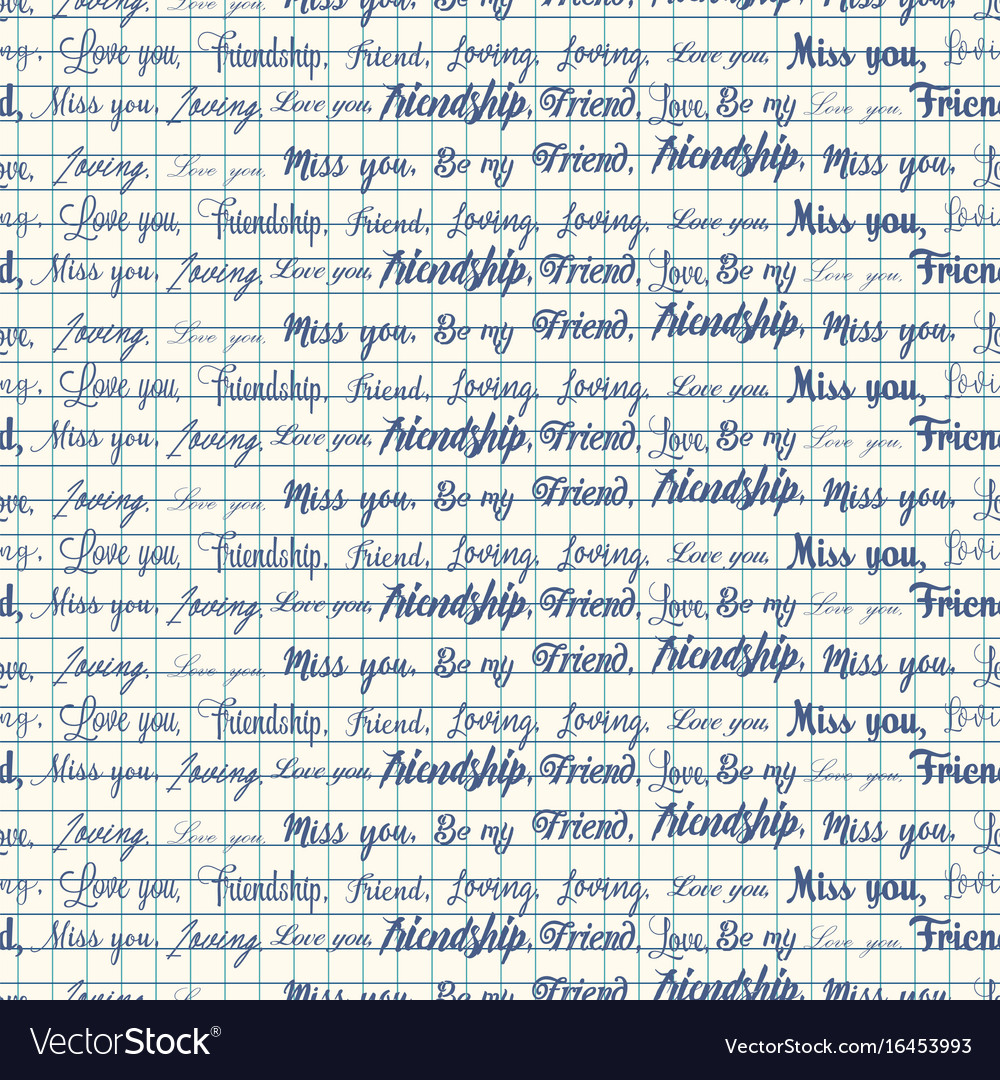 ove, Loving, Love you, Miss you, Be my Friend, Friendship, Miss you, Lo
ng, Love you, Friendship, Friend, Loving, Loving, Love you, Miss you, Lovi
d, Miss you, Loving, Love you, Friendship, Friend, Love, Be my Love you, Frien
ove, Loving, Love you, Miss you, Be my Friend, Friendship, Miss you, Lo
ng, Love you, Friendship, Friend, Loving, Loving, Love you, Miss you, Lovi
d, Miss you, Loving, Love you, Friendship, Friend, Love, Be my Love you, Frien
ove, Loving, Love you, Miss you, Be my Friend, Friendship, Miss you, Lo
ng, Love you, Friendship, Friend, Loving, Loving, Love you, Miss you, Lovi
d, Miss you, Loving, Love you, Friendship, Friend, Love, Be my Love you, Frien
ove, Loving, Love you, Miss you, Be my Friend, Friendship, Miss you, Lo
ng, Love you, Friendship, Friend, Loving, Loving, Love you, Miss you, Lovi
d, Miss you, Loving, Love you, Friendship, Friend, Love, Be my Love you, Frien
ove, Loving, Love you, Miss you, Be my Friend, Friendship, Miss you, Lo
ng, Love you, Friendship, Friend, Loving, Loving, Love you, Miss you, Lovi
d, Miss you, Loving, Love you, Friendship, Friend, Love, Be my Love you, Frien
ove, Loving, Love you, Miss you, Be my Friend, Friendship, Miss you, Lo
ng, Love you, Friendship, Friend, Loving, Loving, Love you, Miss you, Lovi
d, Miss you, Loving, Love you, Friendship, Friend, Love, Be my Love you, Frien
Miss you, Be my Friend, Friendship, Miss you,
VectorStock® VectorStock.com/16453993